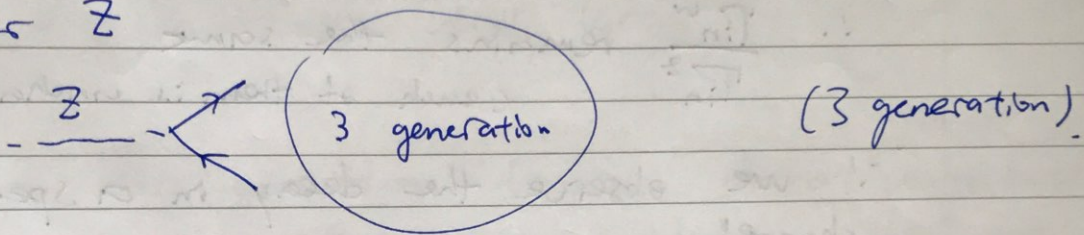 Z
Z
3 generation (3 generation).